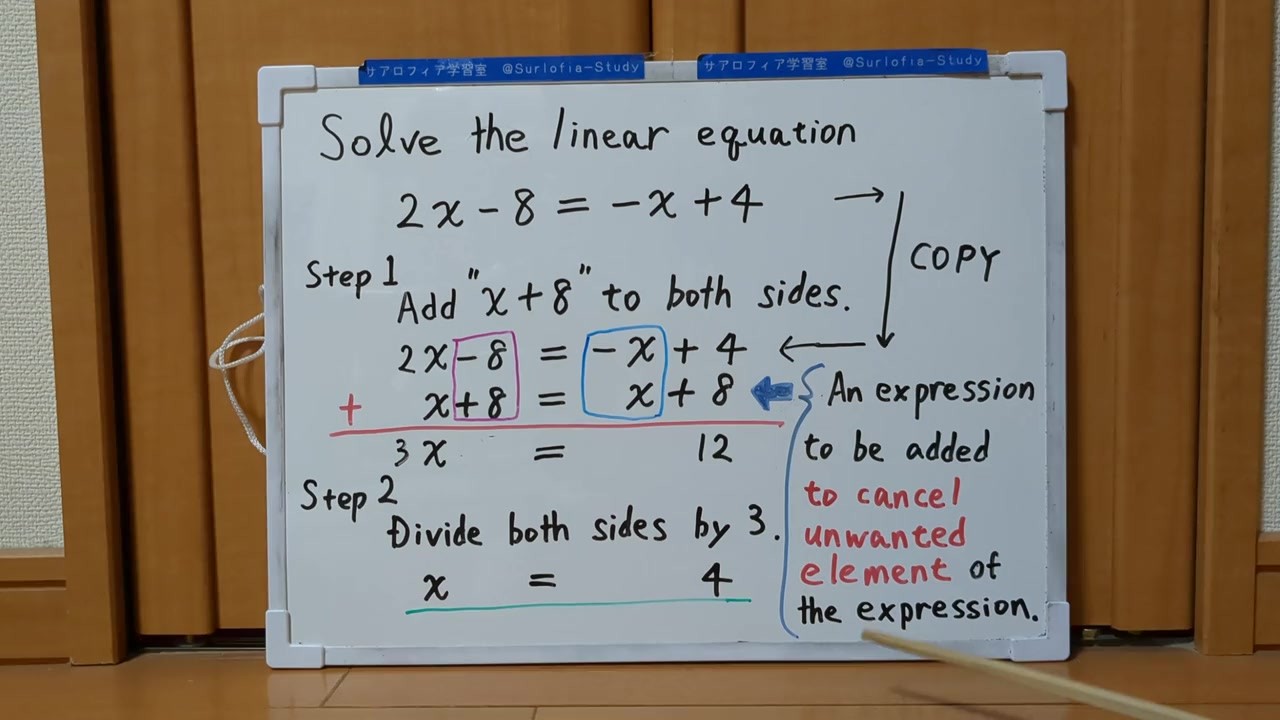 サアロフィア学習室 @Surlofia-Study
サアロフィア学習室 @Surlofia-Study
Solve the linear equation
2x - 8 = -x + 4 →
COPY
Step 1
Add "x + 8" to both sides.
2x - 8 = -x + 4 ←
+ x + 8 = x + 8
3x = 12
Step 2
Divide both sides by 3.
x = 4
An expression
to be added
to cancel
unwanted
element of
the expression.